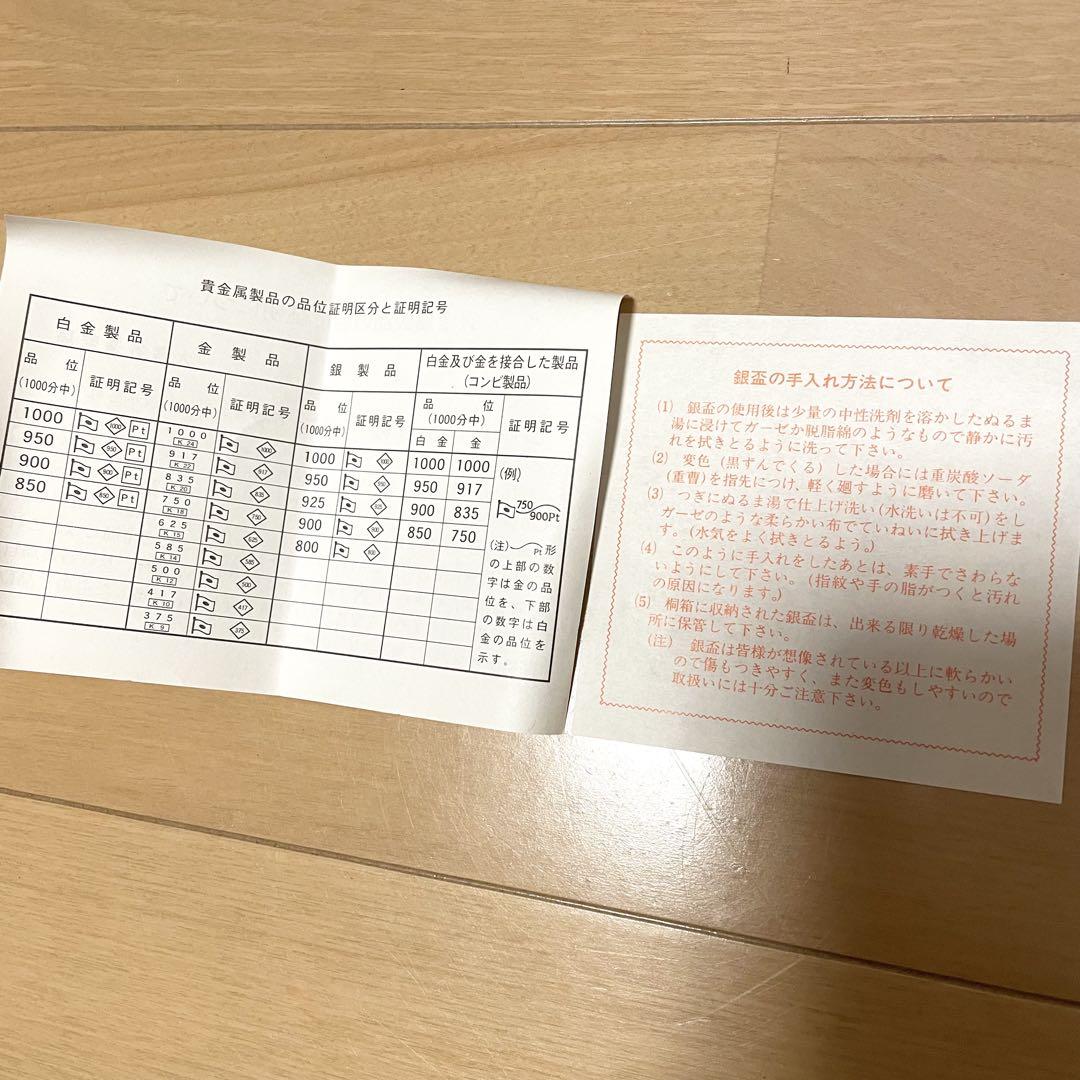 貴金属製品の品位証明区分と証明記号
白金製品 金製品 銀製品 白金及び金を接合した製品
(コンビ製品)
品位 証明記号 品位 証明記号 品位 証明記号 品位 証明記号
(1000分中) (1000分中) (1000分中) (1000分中)
白金 金
1000 1000 Pt 1000 K.24 1000 1000 1000 1000 1000 (例)
950 950 Pt 917 K.22 917 950 950 950 917
900 900 Pt 835 K.20 835 925 925 900 835 750
850 850 Pt 750 K.18 750 900 900 850 750 900Pt
625 K.15 625 800 800
585 K.14 585
500 K.12 500
417 K.10 417
375 K.9 375
(注) Pt形
の上部の数
字は金の品
位を、下部
の数字は白
金の品位を
示す。
銀盃の手入れ方法について
(1) 銀盃の使用後は少量の中性洗剤を溶かしたぬるま
湯に浸けてガーゼか脱脂綿のようなもので静かに汚
れを拭きとるように洗って下さい。
(2) 変色(黒ずんでくる)した場合には重炭酸ソーダ
(重曹)を指先につけ、軽く廻すように磨いて下さい。
(3) つぎにぬるま湯で仕上げ洗い(水洗いは不可)をし
ガーゼのような柔らかい布でていねいに拭き上げま
す。(水気をよく拭きとるよう。)
(4) このように手入れをしたあとは、素手でさわらな
いようにして下さい。(指紋や手の脂がつくと汚れ
の原因になります。)
(5) 桐箱に収納された銀盃は、出来る限り乾燥した場
所に保管して下さい。
(注) 銀盃は皆様が想像されている以上に軟らかい
ので傷もつきやすく、また変色もしやすいので
取扱いには十分ご注意下さい。